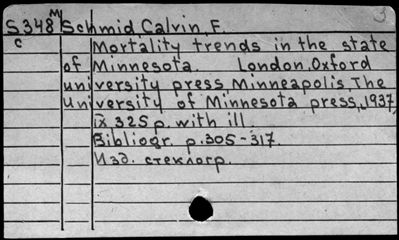 S348 M Schmid, Calvin, F.
c Mortality trends in the state
of Minnesota. London, Oxford
university press Minneapolis, The
university of Minnesota press, 1937,
ix 325 p. with ill.
Bibliogr. p. 305-317.
Изд. стеклогр.